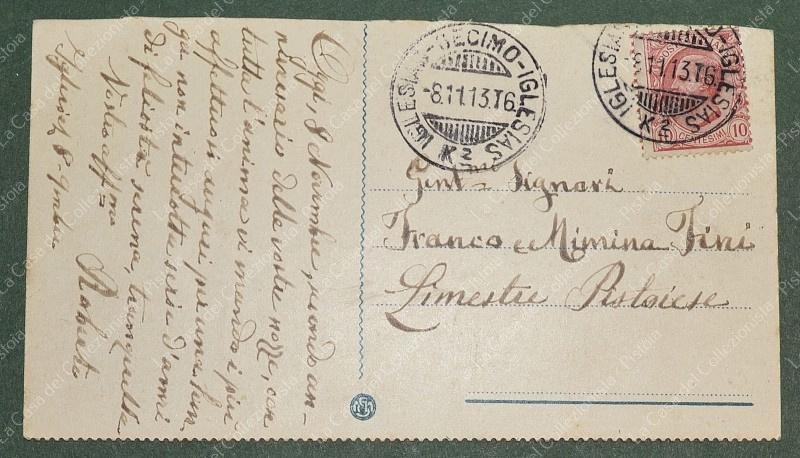 Oggi, 8 Novembre, secondo an-
niversario delle vostre nozze, con
tutta l'anima vi mando i più
affettuosi auguri per una lun-
ga non interrotta serie d'anni
di felicità serena, tranquilla
Vostro aff.mo
Roberto
Iglesias 8-9mbre
DECIMO-IGLESIAS
-8.11.13.T6
IGLESIAS
K2
DECIMO-IGLESIAS
-8.11.13.T6
IGLESIAS
K2
POSTE
CENTESIMI 10
Gent. Signori
Franco e Mimina Fini
Limestre Pistoiese
La Casa del Collezionista
Pistoia